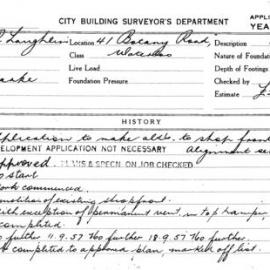 CITY BUILDING SURVEYOR'S DEPARTMENT
APPLIC
YEAR
Laughlin Location 41 Botany Road, Description
Class Waterloo
Nature of Foundation
Live Load
Depth of Footings
Foundation Pressure
Checked
Estimate
HISTORY
pplication to make altns. to shop front
DEVELOPMENT APPLICATION NOT NECESSARY alignment
pproved PLANS & SPECN. ON JOB CHECKED
to start
ork commenced.
molition of existing shopfront.
ith exception of permanent vent in top hamper
completed.
o further 11.9.57 No further 18.9.57 No further
k completed to approved plan, marked off list.